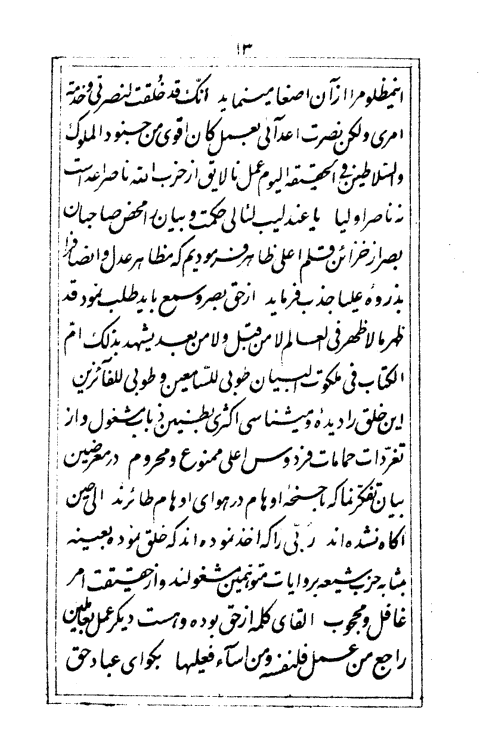 ۱۳
اینمظلوم را از آن اصغا مینماید انّک قد خُلقت لنصرتی و خدمة
امری ولکن نصرت اعدآئی بعمل کان اقوی من جنود الملوک
والسّلاطین فی الحقیقه الیوم عمل نالایق از حزب الله ناصر اعداست
نه ناصر اولیا یا عندلیب لئالی حکمت و بیان را محض صاحبان
بصر از خزائن قلم اعلی ظاهر فرمودیم که مظاهر عدل و انصاف را
بذروهٔ علیا جذب فرماید از حق بصر و سمع باید طلب نمود قد
ظهر ما لا ظهر فی العالم لا من قبل ولا من بعد یشهد بذلک امّ
الکتاب فی ملکوت البیان طوبی للسّامعین و طوبی للفآئزین
این خلق را دیدهٔ و میشناسی اکثری بطنین ذباب مشغول و از
تغرّدات حمامات فردوس اعلی ممنوع و محروم در معرضین
بیان تفکّر نما که باجنحهٔ اوهام در هوای اوهام طائرند الی حین
آگاه نشده‌اند ربّی را که اخذ نموده‌اند که خلق نموده بعینه
بمثابه حزب شیعه بروایات متوهّمین مشغولند و از حقیقت امر
غافل و محجوب القای کلمه از حق بوده و هست دیگر عمل بعاملین
راجع من عمل فلنفسه ومن اسآء فعلیها بگوای عباد حق